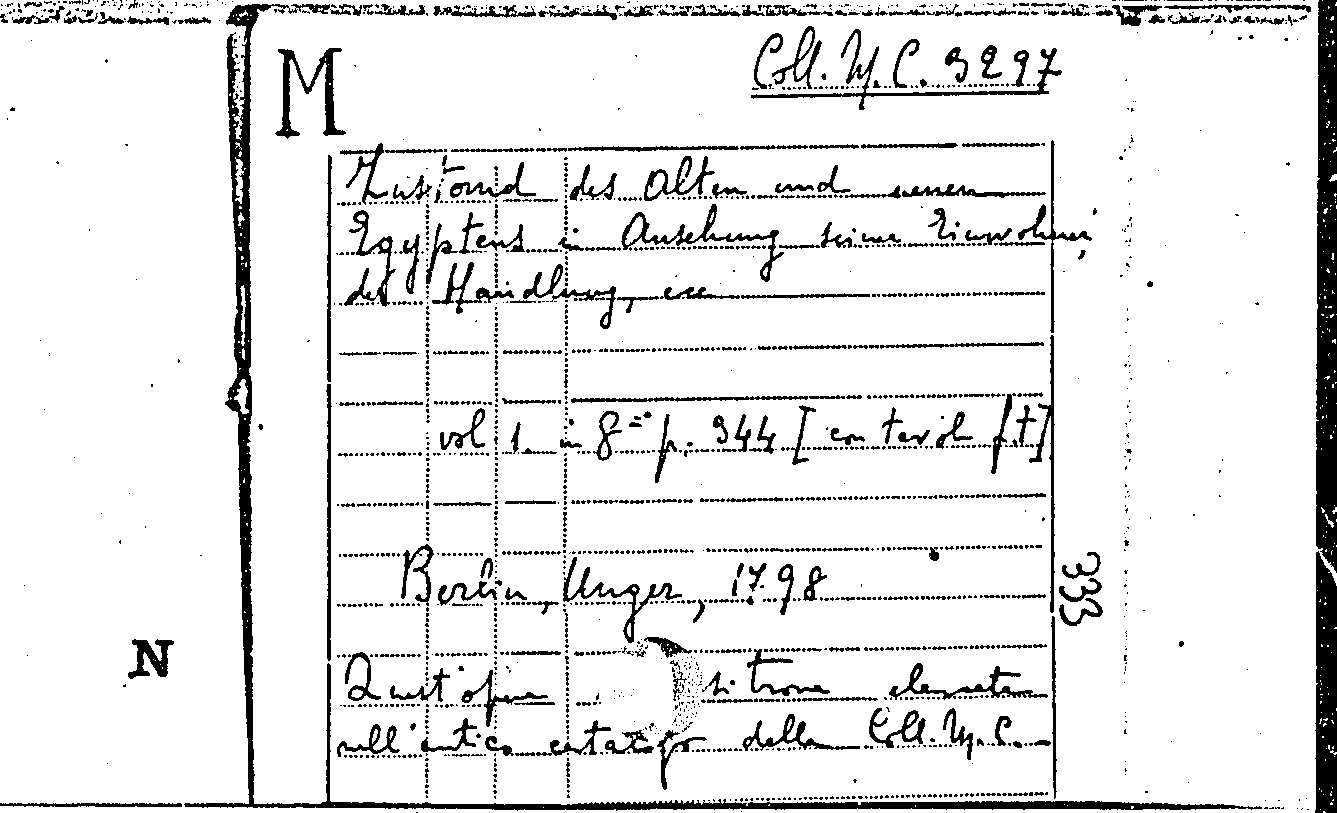 M
Coll. M. C. 3297
Zustand des Alten und neuen
Egyptens in Ansehung seine Einwohner,
der Handlung, ecc
vol 1. in 8º p. 344 [con tavol f.t]
Berlin, Unger, 1798
333
N
Quest'opera si trova elencata
nell'antico catalogo della Coll. M. C.